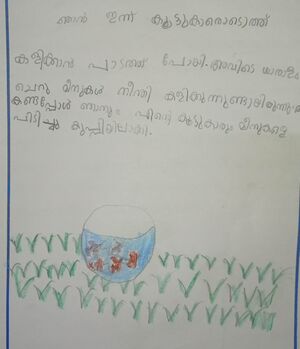 ഞാൻ ഇന്ന് കൂട്ടുകാരൊടൊത്ത്
കളിക്കാൻ പാടത്ത് പോയി. അവിടെ ധാരാളം
ചെറു മീനുകൾ നീന്തി കളിക്കുന്നുണ്ടായിരുന്നു.
കണ്ടപ്പോൾ ഞാനും എന്റെ കൂട്ടുകാരും മീനുകളെ
പിടിച്ചു കുപ്പിയിലാക്കി.